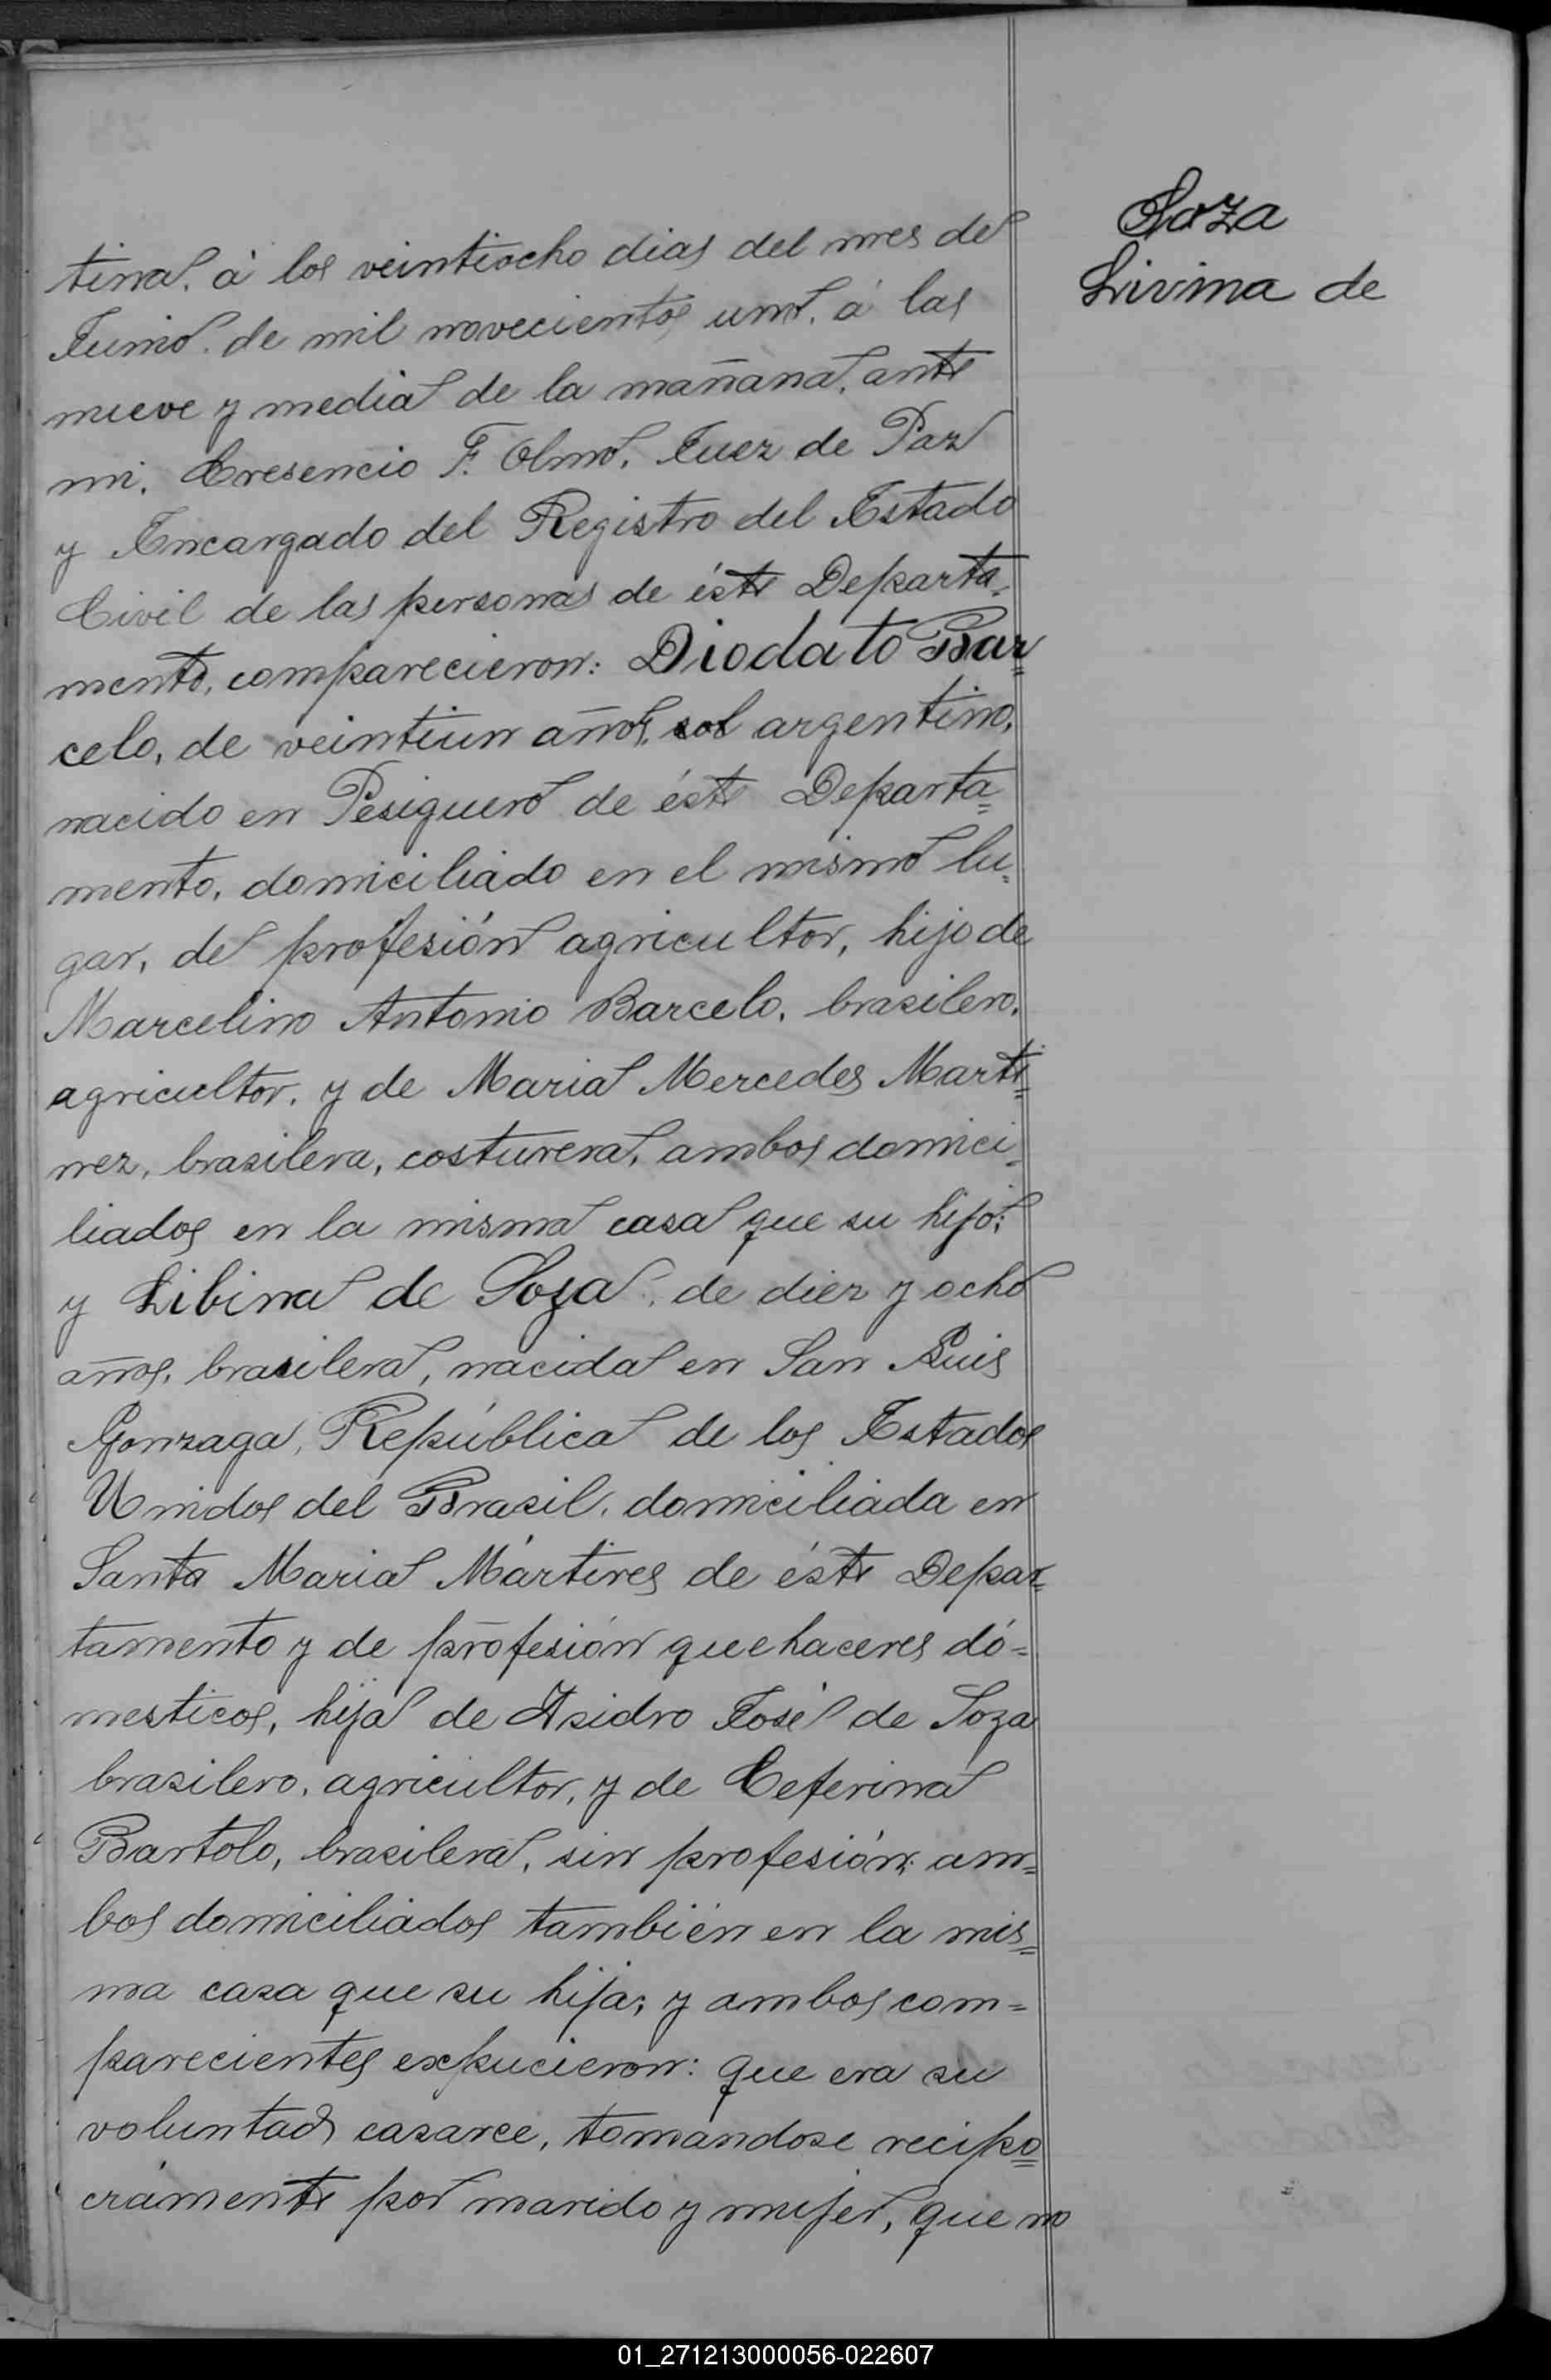 Soza
Livina de
tina, á los veintiocho dias del mes de
Junio de mil novecientos uno, á las
nueve y media de la mañana, ante
mi, Cresencio F. Olmo, Juez de Paz
y Encargado del Registro del Estado
Civil de las personas de éste Departa-
mento, comparecieron: Diodato Bar=
celo, de veintiun años, sol argentino,
nacido en Pesiguero de éste Departa=
mento, domiciliado en el mismo lu=
gar, de profesión agricultor, hijo de
Marcelino Antonio Barcelo, brasilero,
agricultor, y de Maria Mercedes Marti=
nez, brasilera, costurera, ambos domici=
liados en la misma casa que su hijo;
y Libina de Soza, de diez y ocho
años, brasilera, nacida en San Luis
Gonzaga, República de los Estados
Unidos del Brasil, domiciliada en
Santa Maria Mártires de éste Depar=
tamento y de profesión quehaceres dó=
mesticos, hija de Isidro José de Soza
brasilero, agricultor, y de Ceferina
Bartolo, brasilera, sin profesión; am=
bos domiciliados también en la mis=
ma casa que su hija; y ambos com=
parecientes expucieron: que era su
voluntad casarce, tomandose recipo=
cramente por marido y mujer, que no
01_271213000056-022607